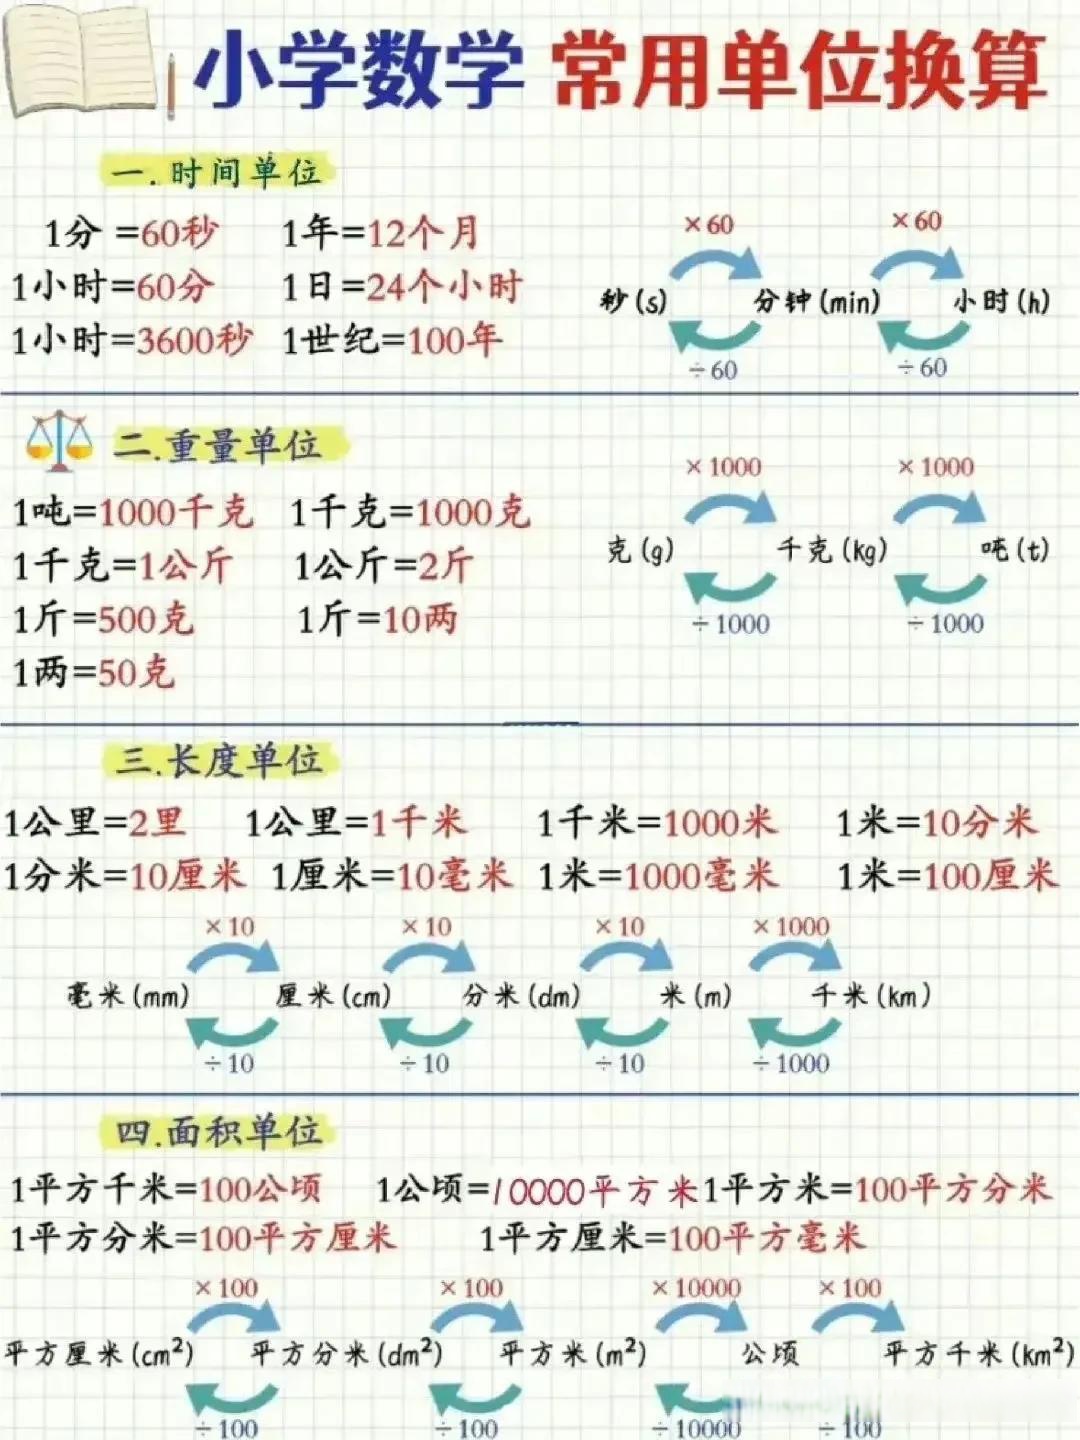 小学数学 常用单位换算
一.时间单位
1分=60秒 1年=12个月
1小时=60分 1日=24个小时
1小时=3600秒 1世纪=100年
×60 ×60
秒(s) 分钟(min) 小时(h)
÷60 ÷60
二.重量单位
1吨=1000千克 1千克=1000克
1千克=1公斤 1公斤=2斤
1斤=500克 1斤=10两
1两=50克
×1000 ×1000
克(g) 千克(kg) 吨(t)
÷1000 ÷1000
三.长度单位
1公里=2里 1公里=1千米 1千米=1000米 1米=10分米
1分米=10厘米 1厘米=10毫米 1米=1000毫米 1米=100厘米
×10 ×10 ×10 ×1000
毫米(mm) 厘米(cm) 分米(dm) 米(m) 千米(km)
÷10 ÷10 ÷10 ÷1000
四.面积单位
1平方千米=100公顷 1公顷=10000平方米 1平方米=100平方分米
1平方分米=100平方厘米 1平方厘米=100平方毫米
×100 ×100 ×10000 ×100
平方厘米(cm²) 平方分米(dm²) 平方米(m²) 公顷 平方千米(km²)
÷100 ÷100 ÷10000 ÷100